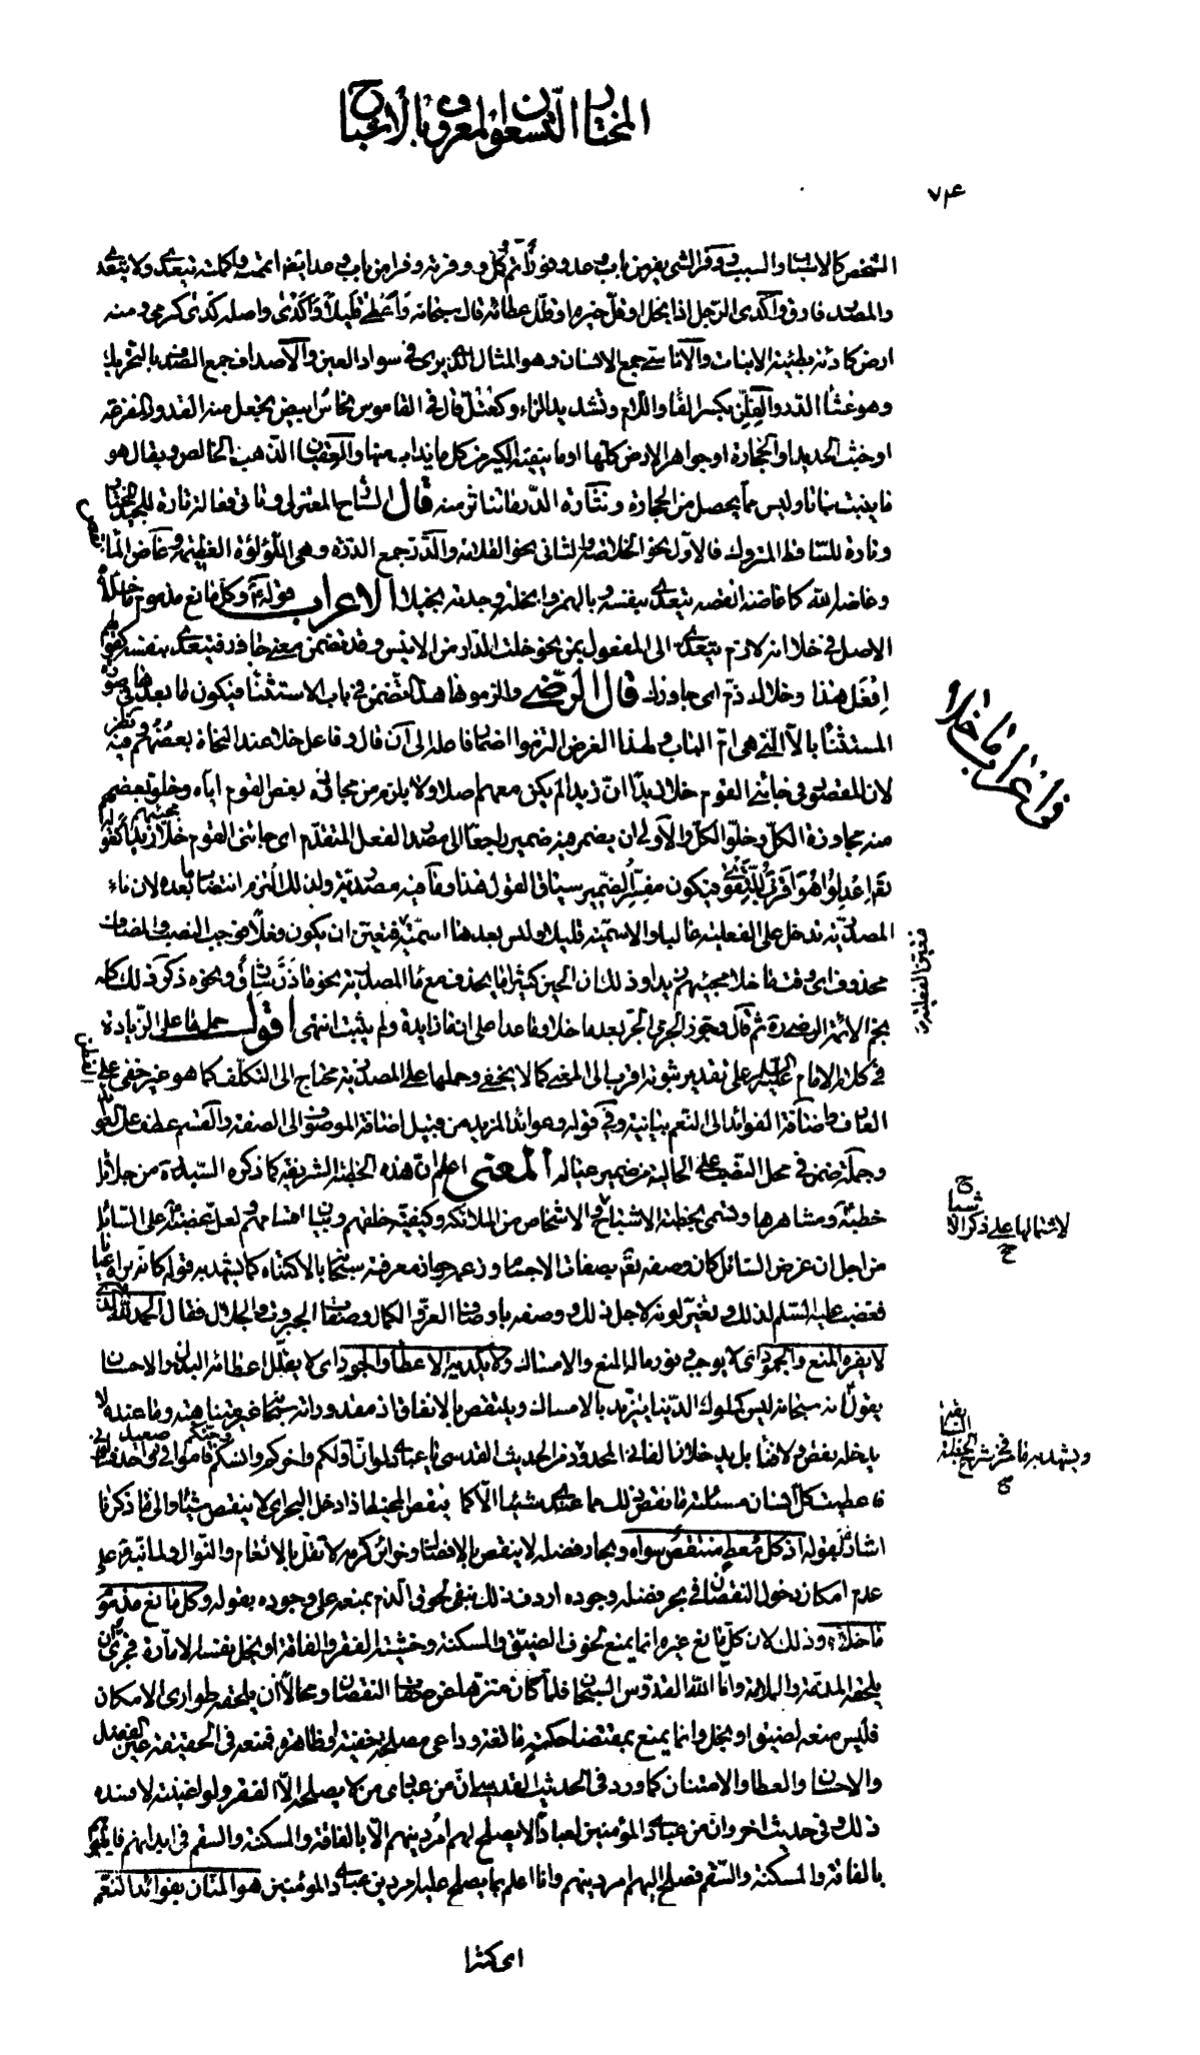 المختار التسعون المعروف بالاشباح
٧٣
الشخص كالاسباب والسبب ووفر الشي يفر من باب وعد وفورا تم وكمل ووفرته وفرا من باب وعد ايضا اتممته واكملته يتعدى ولا يتعدى
والمصدر فارق واكدى الرجل اذا بخل او قل خيره او قلل عطائه قال سبحانه وَأَعْطى قَليلاً وَأَكْدى واصله كدى كرمى ومنه
ارض كادئة بطيئة الانبات والاناسي جمع الانسان وهو المثال الذي يرى في سواد العين والاصداف جمع الصدف بالتحريك
وهو غشاء الدر والفِلِزّ بكسر الفاء واللام وتشديد الزاء وكعتلّ قال في القاموس نحاس ابيض يجعل منه القدور المفرغة
او خبث الحديد او الحجارة او جواهر الارض كلها او ما ينفيه الكير من كل ما يذاب منها والعقيان الذهب الخالص ويقال هو
ما ينبت نباتا وليس مما يحصل من الحجارة ونثارة الدر ما تناثر منه قال الشارح المعتزلي وتاتي فعالة تارة للجيد المختار
وتارة للساقط المتروك فالاول نحو الخلاصة والثاني نحو القلامة والدرر جمع الدرة وهي اللؤلؤة العظيمة وغاض الماء نقص
وغاضه الله كاغاضه انقصه يتعدى بنفسه وبالهمزة وابخله وجدته بخيلا الاعراب قوله وكل مانع مذموم ما خلاه
الاصل في خلا انه لازم يتعدى الى المفعول بمن نحو خلت الدار من الانيس وقد تضمن معنى جاوز فيتعدى بنفسه كقولهم
اِفْعَل هذا وخلاك ذمّ اي جاوزك قال الرضي والزموها هذا التضمن في باب الاستثناء فيكون ما بعدها في صورة
المستثنا بالا التي هي ام الباب ولهذا الغرض التزموا اضمار فاعله الى ان قال وفاعل خلا عند النحاة بعضهم وفيه نظر
لان المقصود في جائني القوم خلا زيدا ان زيدا لم يكن معهم اصلا ولا يلزم من مجاوزة بعض القوم اياه وخلو بعضهم
منه مجاوزة الكل وخلو الكل والاولى ان يضمر فيه ضمير راجعا الى مصدر الفعل المتقدم اي جائني القوم خلا مجيئهم زيدا كقوله
تعالى اِعْدِلُوا هُوَ أَقْرَبُ لِلتَّقْوى فيكون مفسر الضمير سياق القول هذا وما فيه مصدرية ولذلك التزم انتصاب ما بعده لان ماء
المصدرية تدخل على الفعلية غالبا والاسمية قليلا وليس بعدها اسمية فتعين ان يكون فعلا فوجب النصب والمضاف
محذوف اي وقت ما خلا مجيئهم زيدا وذلك ان الحين كثيرا ما يحذف مع ما المصدرية نحو ما ذَرّ شارق ونحوه ذكر ذلك كله
نجم الائمة الرضي ثم قال وجوز الجرمي الجر بعد ما خلا وما عدا على ان ما زايدة ولم يثبت انتهى اقول حمل ما على الزيادة
في كلام الامام عليه السلم على تقدير ثبوته اقرب الى المعنى كما لا يخفى وحملها على المصدرية محتاج الى التكلف كما هو غير خفي على
العارف واضافة الفوائد الى النعم بيانية وفي قوله وعوائد المزيد من قبيل اضافة الموصوف الى الصفة والقسم عطف على
وجملة ضمن في محل النصب على الحالية من ضمير عياله المعنى اعلم ان هذه الخطبة الشريفة كما ذكره السيد ره من جلائل
خطبه ومشاهرها وتسمى بخطبة الاشباح والاشخاص من الملائكة وكيفية خلقهم وبيان اقسامهم ولعل غضبه على السائل
من اجل ان غرض السائل كان وصفه تعالى بصفات الاجسام وزعمه جواز معرفته سبحانه بالاكتناه كما يشهد به قوله كانه يراه عيانا
فغضب عليه السلم لذلك وتغير لونه لاجل ذلك ووصفه باوصاف العز والكمال وصفات الجبروت والجلال فقال الحمد لله الذي
لا يفره المنع والجمود اي لا يوجب وفور ماله المنع والامساك ولا يكديه الاعطاء والجود اي لا يقلل اعطائه البذل والاحسان
يقول انه سبحانه ليس كملوك الدنيا يتزيد بالامساك وينتقص بالانفاق اذ مقدوراته سبحانه غير متناهية وما عنده لا
يدخله نقص ولا فناء بل يدخلان الفاني المحدود في الحديث القدسي يا عبادي لو ان اولكم واخركم وانسكم وجنكم قاموا في صعيد واحد فسألوني
فاعطيت كل انسان مسئلته ما نقص ذلك مما عندي شيئا الا كما ينقص المخيط اذا دخل البحر اي لا ينقص شيئا والى ما ذكرنا
اشار بقوله اذ كل معط منتقص سواه وبحار فضله لا ينقص بالافضال وخزائن كرمه لا تقل بالانعام والنوال ولما نبه على
عدم امكان دخول النقصان في بحر فضله وجوده اردف ذلك بنفي لحوق الذم بمنعه على وجوده بقوله وكل مانع مذموم
ما خلاه وذلك لان كل مانع غيره انما يمنع لخوف الضيق والمسكنة وخشية الفقر والفاقة او بخل نفسه الامارة فحري ان
يلحقه المذمة والملامة واما الله القدوس السبحان فلما كان منزها عن صفات النقصان ومحالا ان يلحقه طواري الامكان
فليس منعه لضيق او بخل وانما يمنع بمقتضا حكمته بالغة وداعي مصلحة خفية او ظاهرة فمنعه في الحقيقة عين الفضل
والاحسان والعطا والامتنان كما ورد في الحديث القدسي ان من عبادي من لا يصلحه الا الفقر ولو اغنيته لافسده
ذلك وفي حديث اخر وان من عبادي المؤمنين لعبادا لا يصلح لهم امر دينهم الا بالفاقة والمسكنة والسقم في ابدانهم فابلوهم
بالفاقة والمسكنة والسقم فصلح اليهم امر دينهم وانا اعلم بما يصلح عليه امر دين عبادي المؤمنين هو المنان بفوائد النعم
اي كثرا
في اعراب ما خلا
فتعين الفعلية
لاشتمالها على ذكر الاشباح
ويشهد به ما في شرح